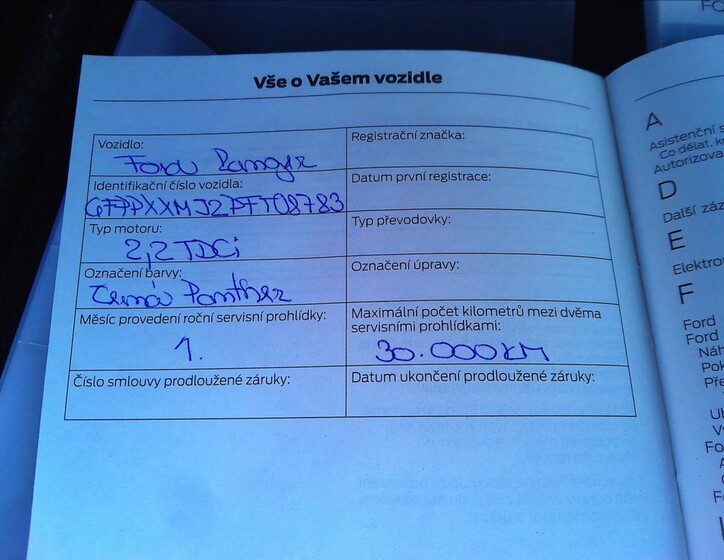 FO
Vše o Vašem vozidle
Vozidlo:
Ford Ranger
Registrační značka:
Identifikační číslo vozidla:
6FPPXXMJ2PFT08783
Datum první registrace:
Typ motoru:
2,2 TDCi
Typ převodovky:
Označení barvy:
Černá Panther
Označení úpravy:
Měsíc provedení roční servisní prohlídky:
1.
Maximální počet kilometrů mezi dvěma
servisními prohlídkami:
30.000 KM
Číslo smlouvy prodloužené záruky:
Datum ukončení prodloužené záruky:
A
Asistenční s
Co dělat, k
Autorizova
D
Další záz
E
Elektron
F
Ford
Ford
Náh
Pok
Pře
Ub
V
Fo